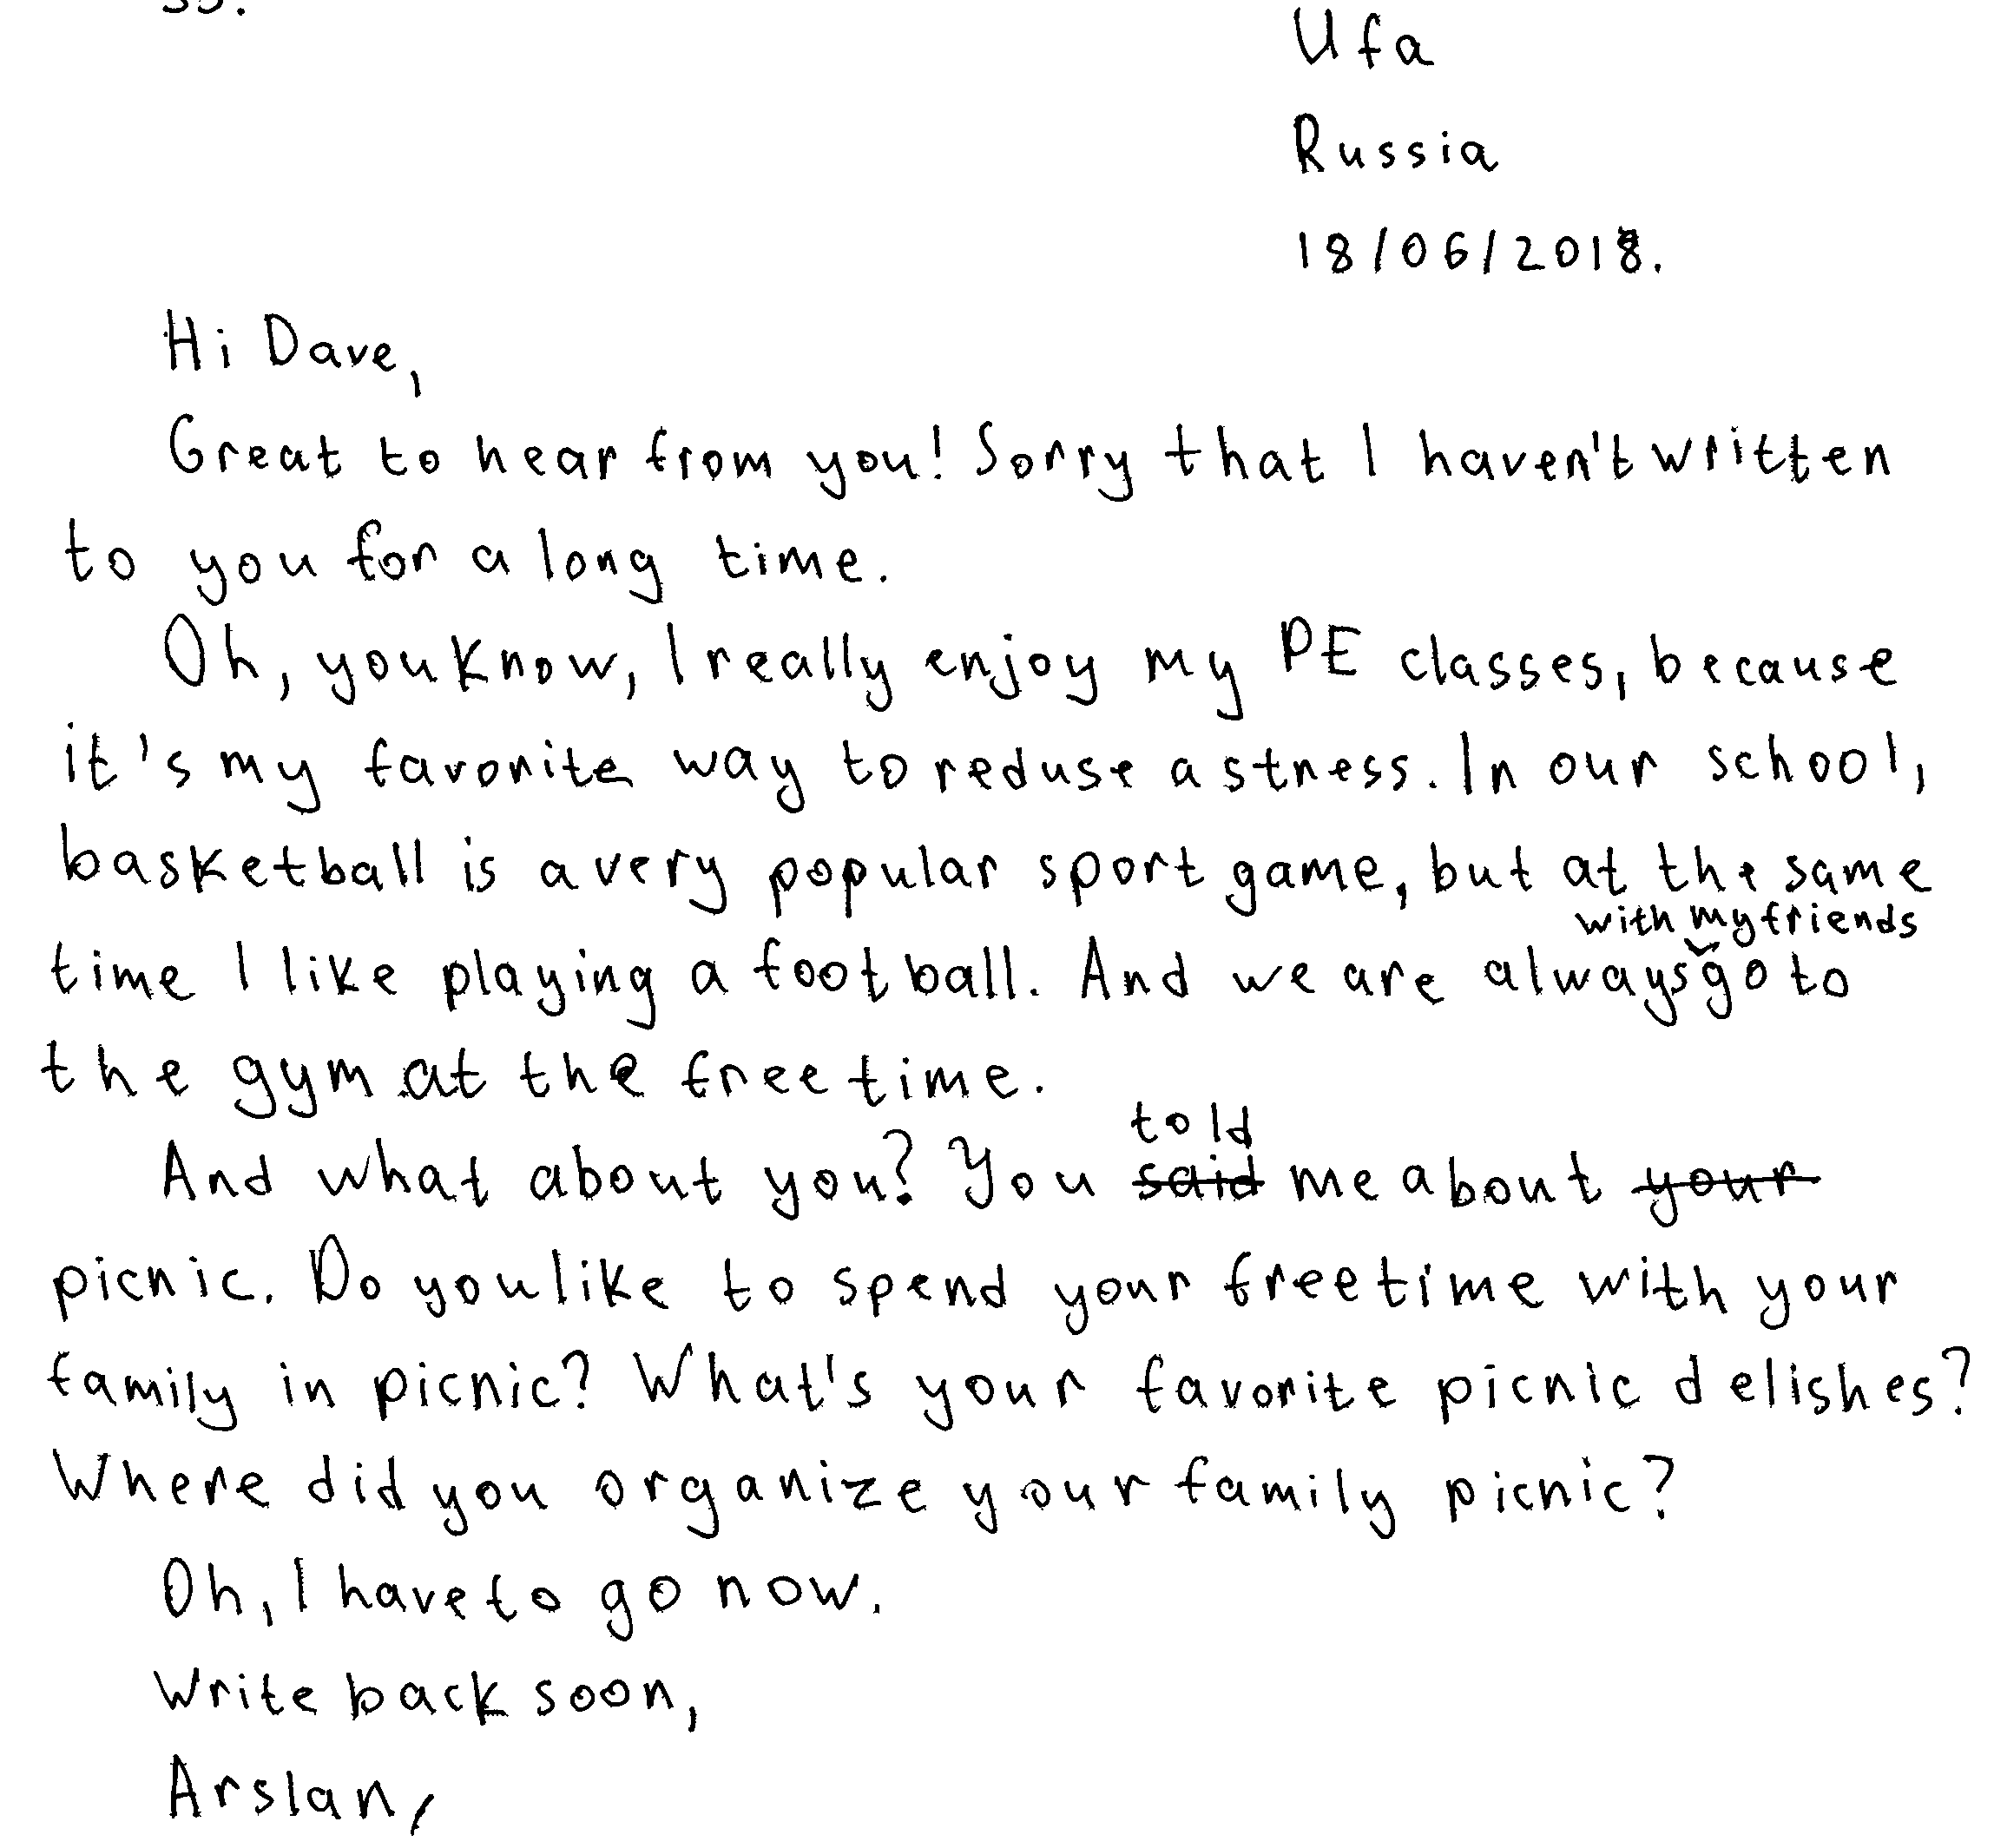 Ufa
Russia
18/06/2018.
Hi Dave,
Great to hear from you! Sorry that I haven't written
to you for a long time.
Oh, you know, I really enjoy my PE classes, because
it's my favorite way to reduse a stress. In our school,
basketball is a very popular sport game, but at the same
with my friends
time I like playing a football. And we are always go to
the gym at the free time.
told
And what about you? You said me about your
picnic. Do you like to spend your freetime with your
family in picnic? What's your favorite picnic delishes?
Where did you organize your family picnic?
Oh, I have to go now.
Write back soon,
Arslan,